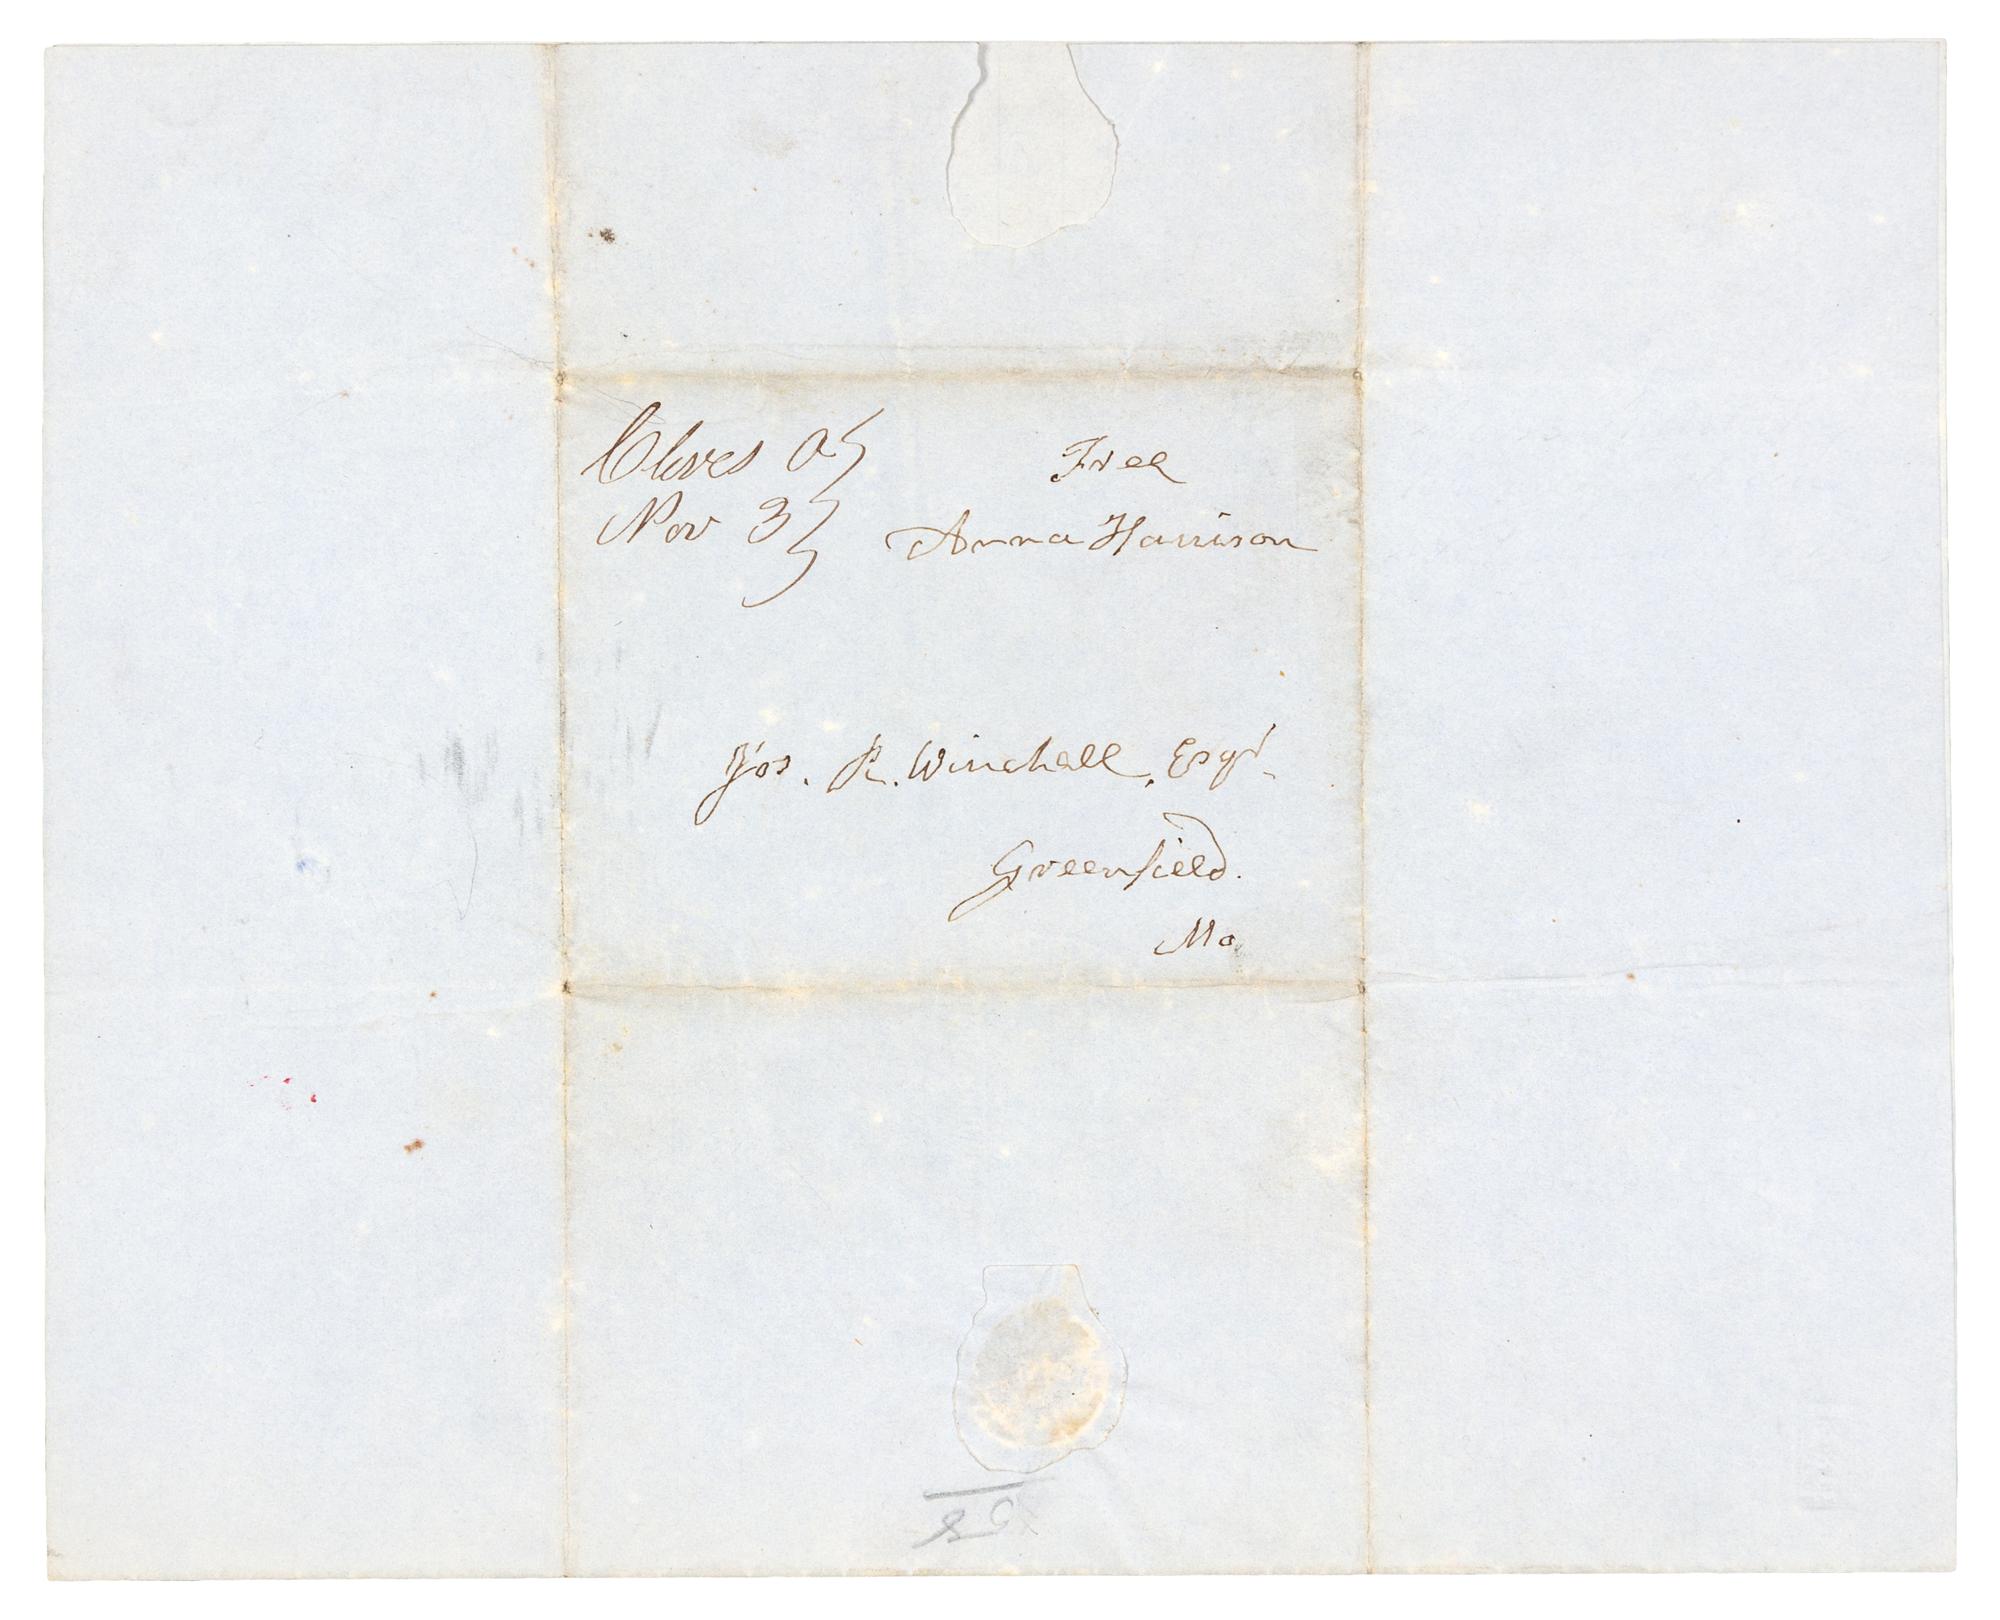 Cloves O
Nov 3
Free
Anna Harrison
Jos. R. Winchell, Esqr.
Greenfield.
Mo